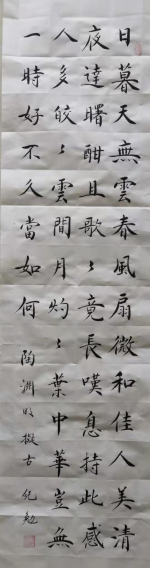 日暮天無雲春風扇微和佳人美清
夜達曙酣且歌〻竟長嘆息持此感
人多皎〻雲間月灼〻葉中華豈無
一時好不久當如何 陶淵明擬古 化勉